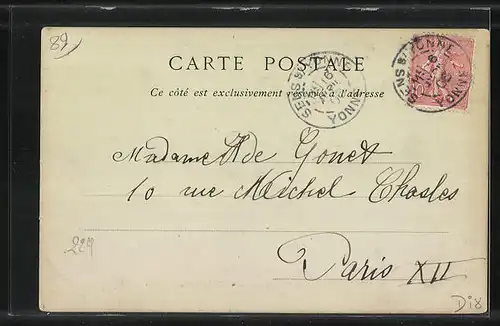 89
CARTE POSTALE
Ce côté est exclusivement réservé à l'adresse
SENS S/ YONNE
YONNE
SENS S/ YONNE
YONNE
Madame A de Gonet
10 rue Michel Chasles
Paris XII
229
D18